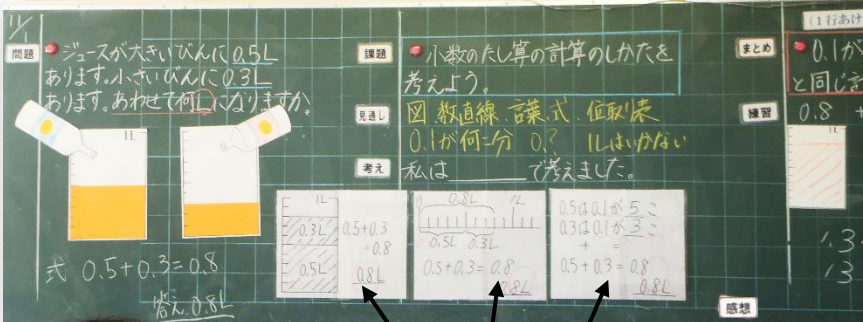 11/1
問題
ジュースが大きいびんに0.5L
あります。小さいびんに0.3L
あります。あわせて何Lになりますか。
1L
1L
式 0.5+0.3=0.8
答え 0.8L
課題
小数のたし算の計算のしかたを
考えよう。
見通し
図 数直線、言葉、式、位取り表
0.1が何こ分 0.? 1Lはいかない
考え
私は で考えました。
1L
0.3L
0.5L
0.5+0.3
=0.8
0.8L
0
0.8L
1L
0.5L 0.3L
0.5+0.3=0.8
0.8L
0.5は0.1が5こ
0.3は0.1が3こ
+ =
0.5+0.3=0.8
0.8L
感想
まとめ
(1行あけ
0.1か
と同じ
練習
0.8 +
1L
1.3
13